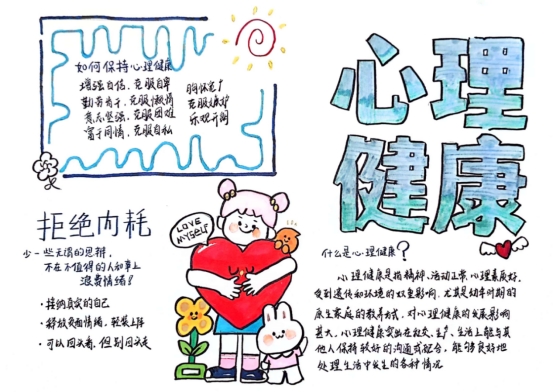 如何保持心理健康
增强自信,克服自卑
勤奋肯干,克服懒惰
意志坚强,克服困难
富于同情,克服自私
胸怀宽广
克服嫉妒
乐观开朗
心理
健康
拒绝内耗
少一些无谓的思辨,
不在不值得的人和事上
浪费情绪!
·接纳真实的自己
·释放负面情绪,轻装上阵
·可以回头看,但别回头走
LOVE
MYself
什么是心理健康?
心理健康是指精神、活动正常、心理素质好,
受到遗传和环境的双重影响,尤其是幼年时期的
原生家庭的教养方式,对心理健康的发展影响
甚大,心理健康突出在社交、生产、生活上能与其
他人保持较好的沟通或配合,能够良好地
处理生活中发生的各种情况